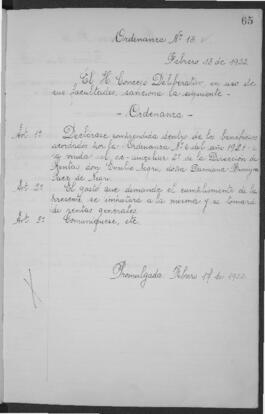 65
Ordenanza Nº 18
Febrero 13 de 1922
El H. Concejo Deliberativo, en uso de
sus facultades, sanciona la siguiente -
- Ordenanza -
Art. 1º Declárase comprendida dentro de los beneficios
acordados por la Ordenanza Nº 6 del año 1921 - a
la viuda del ex-auxiliar 2º de la Dirección de
Renta don Emilio Negri, doña Damiana
Paez de Negri.
Art. 2º El gasto que demande el cumplimiento de la
presente se imputará a la misma y se tomará
de rentas generales.
Art. 3º Comuníquese, etc.
Promulgada. Febrero 17 de 1922.